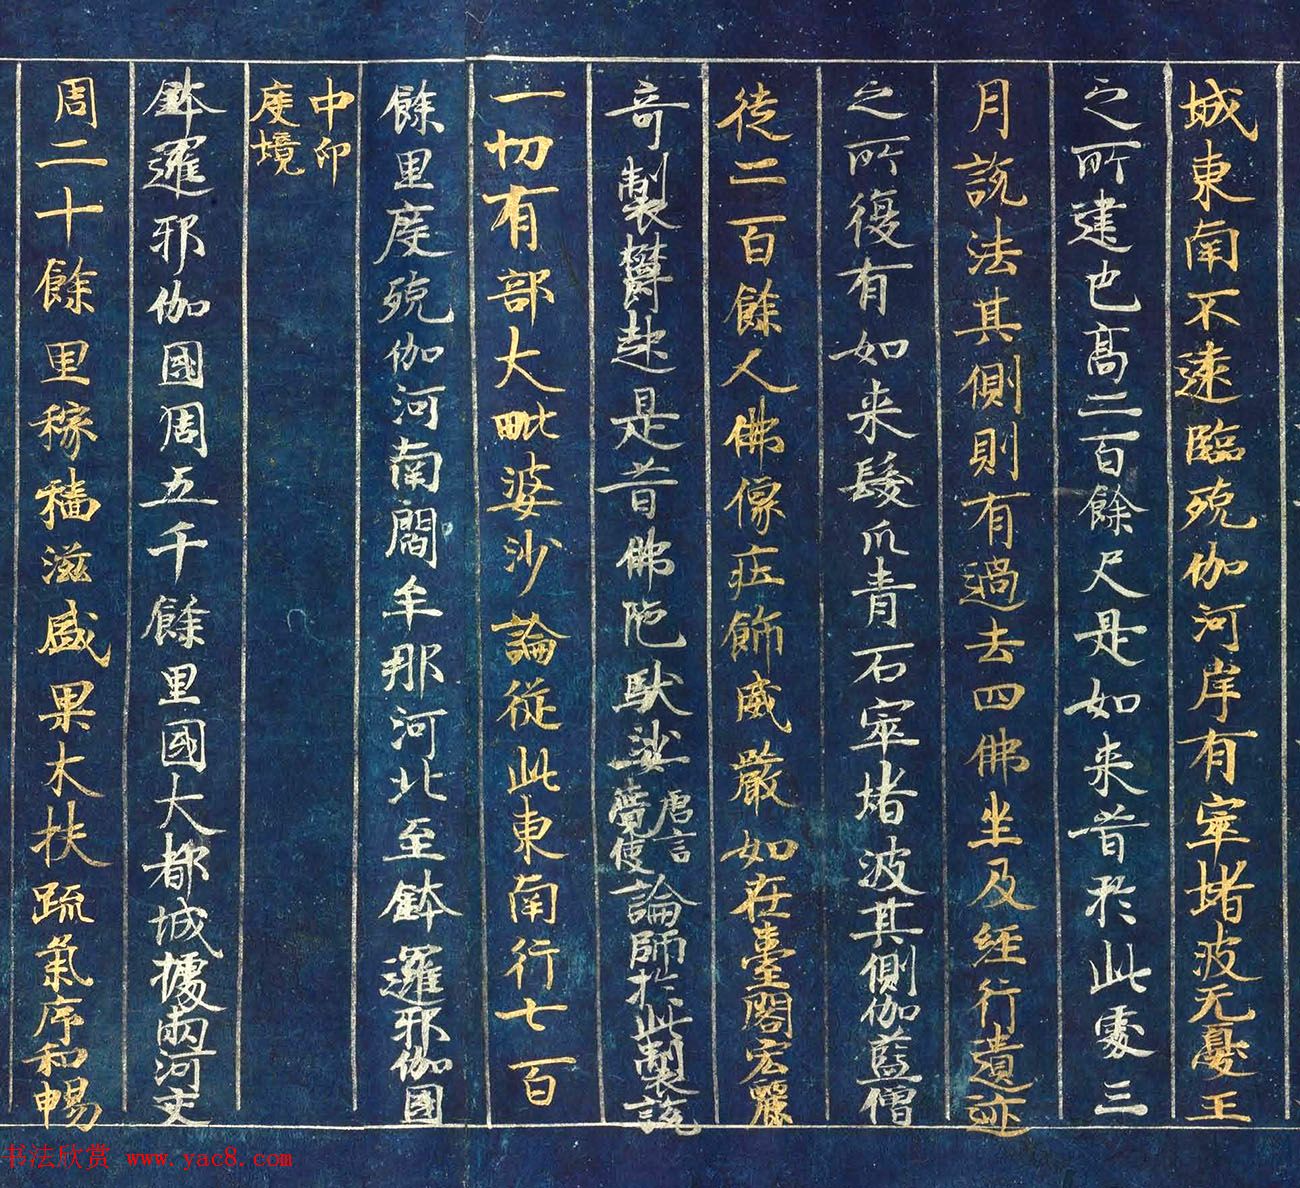 城東南不遠臨殑伽河岸有窣堵波无憂王
之所建也高二百餘尺是如来昔於此處三
月說法其側則有過去四佛坐及經行遺迹
之所復有如来髮爪青石窣堵波其側伽藍僧
徒二百餘人佛像莊飾威嚴如在臺閣宏麗
奇製欝起是昔佛陁馱娑唐言覺使論師於此製說
一切有部大毗婆沙論從此東南行七百
餘里度殑伽河南閻牟那河北至鉢邏邪伽國
中印
度境
鉢邏邪伽國周五千餘里國大都城據兩河交
周二十餘里稼穡滋盛果木扶疏氣序和暢
书法欣赏 www.yac8.com